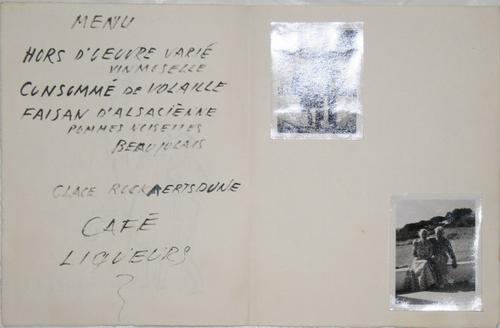 MENU
HORS D'OEUVRE VARIÉ
VIN MOSELLE
CONSOMMÉ DE VOLAILLE
FAISAN D'ALSACIËNNE
POMMES NOISETTES
BEAUJOLAIS
GLACE ROCKAERTSDUNE
CAFÉ
LIQUEURS